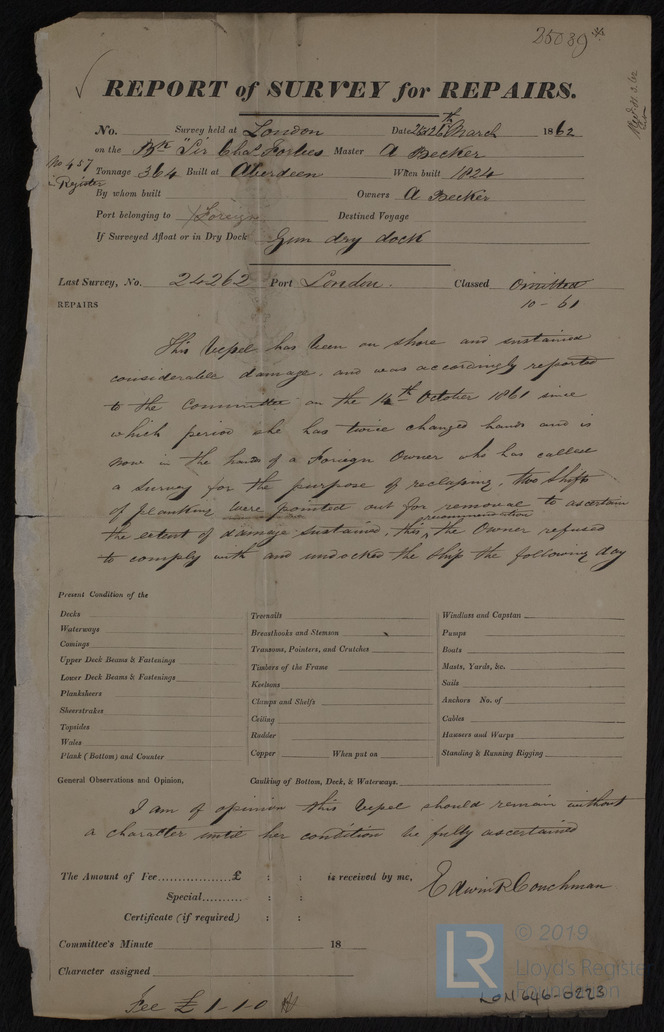 25039
REPORT of SURVEY for REPAIRS.
No. Survey held at London Date 25 & 26th March 1862
on the Bk "Sir Chas Forbes Master A Becker
No 457 Register
Tonnage 364 Built at Aberdeen When built 1824
By whom built Owners A Becker
Port belonging to Foreign Destined Voyage
If Surveyed Afloat or in Dry Dock Gun dry dock
Last Survey, No. 24262 Port London. Classed Omitted
10-61
REPAIRS
This Vessel has been on shore and sustained
considerable damage. and was accordingly reported
to the Committee on the 14th October 1861 since
which period she has twice changed hands and is
now in the hands of a Foreign Owner who has called
a survey for the purpose of reclassing. two shifts
of planking were pointed out for removal to ascertain
the extent of damage sustained, this recommendation the Owner refused
to comply with and undocked the Ship the following day
Present Condition of the
Decks
Waterways
Comings
Upper Deck Beams & Fastenings
Lower Deck Beams & Fastenings
Planksheers
Sheerstrakes
Topsides
Wales
Plank (Bottom) and Counter
Treenails
Breasthooks and Stemson
Transoms, Pointers, and Crutches
Timbers of the Frame
Keelsons
Clamps and Shelfs
Ceiling
Rudder
Copper When put on
Windlass and Capstan
Pumps
Boats
Masts, Yards, &c.
Sails
Anchors No. of
Cables
Hawsers and Warps
Standing & Running Rigging
General Observations and Opinion, Caulking of Bottom, Deck, & Waterways.
I am of opinion this Vessel should remain without
a character until her condition be fully ascertained
The Amount of Fee.................£ : : is received by me,
Special.......... : :
Certificate (if required) : :
Edwin R Couchman
Committee's Minute 18
Character assigned
Fee £ 1-1-0
LR © 2019
Lloyd's Register
Foundation
LON646-0223